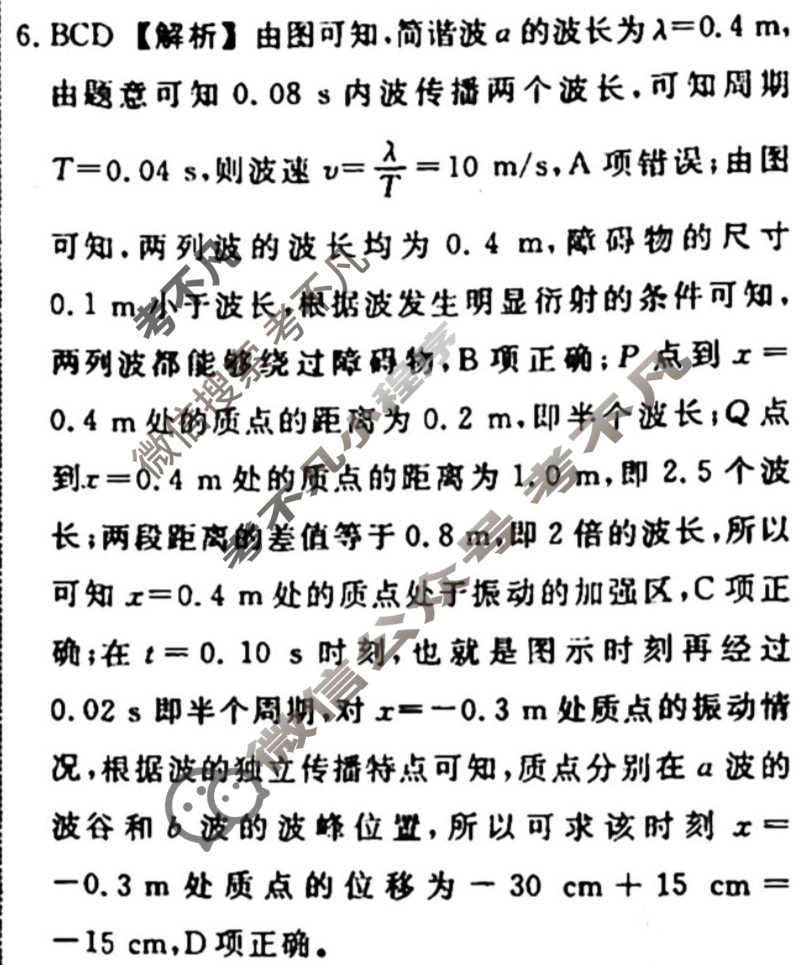 6. BCD 【解析】由图可知,简谐波 a 的波长为 λ=0.4 m,
由题意可知 0.08 s 内波传播两个波长,可知周期
T=0.04 s,则波速 v=λ/T=10 m/s,A 项错误;由图
可知,两列波的波长均为 0.4 m,障碍物的尺寸
0.1 m 小于波长,根据波发生明显衍射的条件可知,
两列波都能够绕过障碍物,B 项正确;P 点到 x=
0.4 m 处的质点的距离为 0.2 m,即半个波长;Q 点
到 x=0.4 m 处的质点的距离为 1.0 m,即 2.5 个波
长;两段距离的差值等于 0.8 m,即 2 倍的波长,所以
可知 x=0.4 m 处的质点处于振动的加强区,C 项正
确;在 t=0.10 s 时刻,也就是图示时刻再经过
0.02 s 即半个周期,对 x=-0.3 m 处质点的振动情
况,根据波的独立传播特点可知,质点分别在 a 波的
波谷和 b 波的波峰位置,所以可求该时刻 x=
-0.3 m 处质点的位移为-30 cm+15 cm=
-15 cm,D 项正确。
考不凡
微信搜索 考不凡
考不凡小程序
微信公众号 考不凡